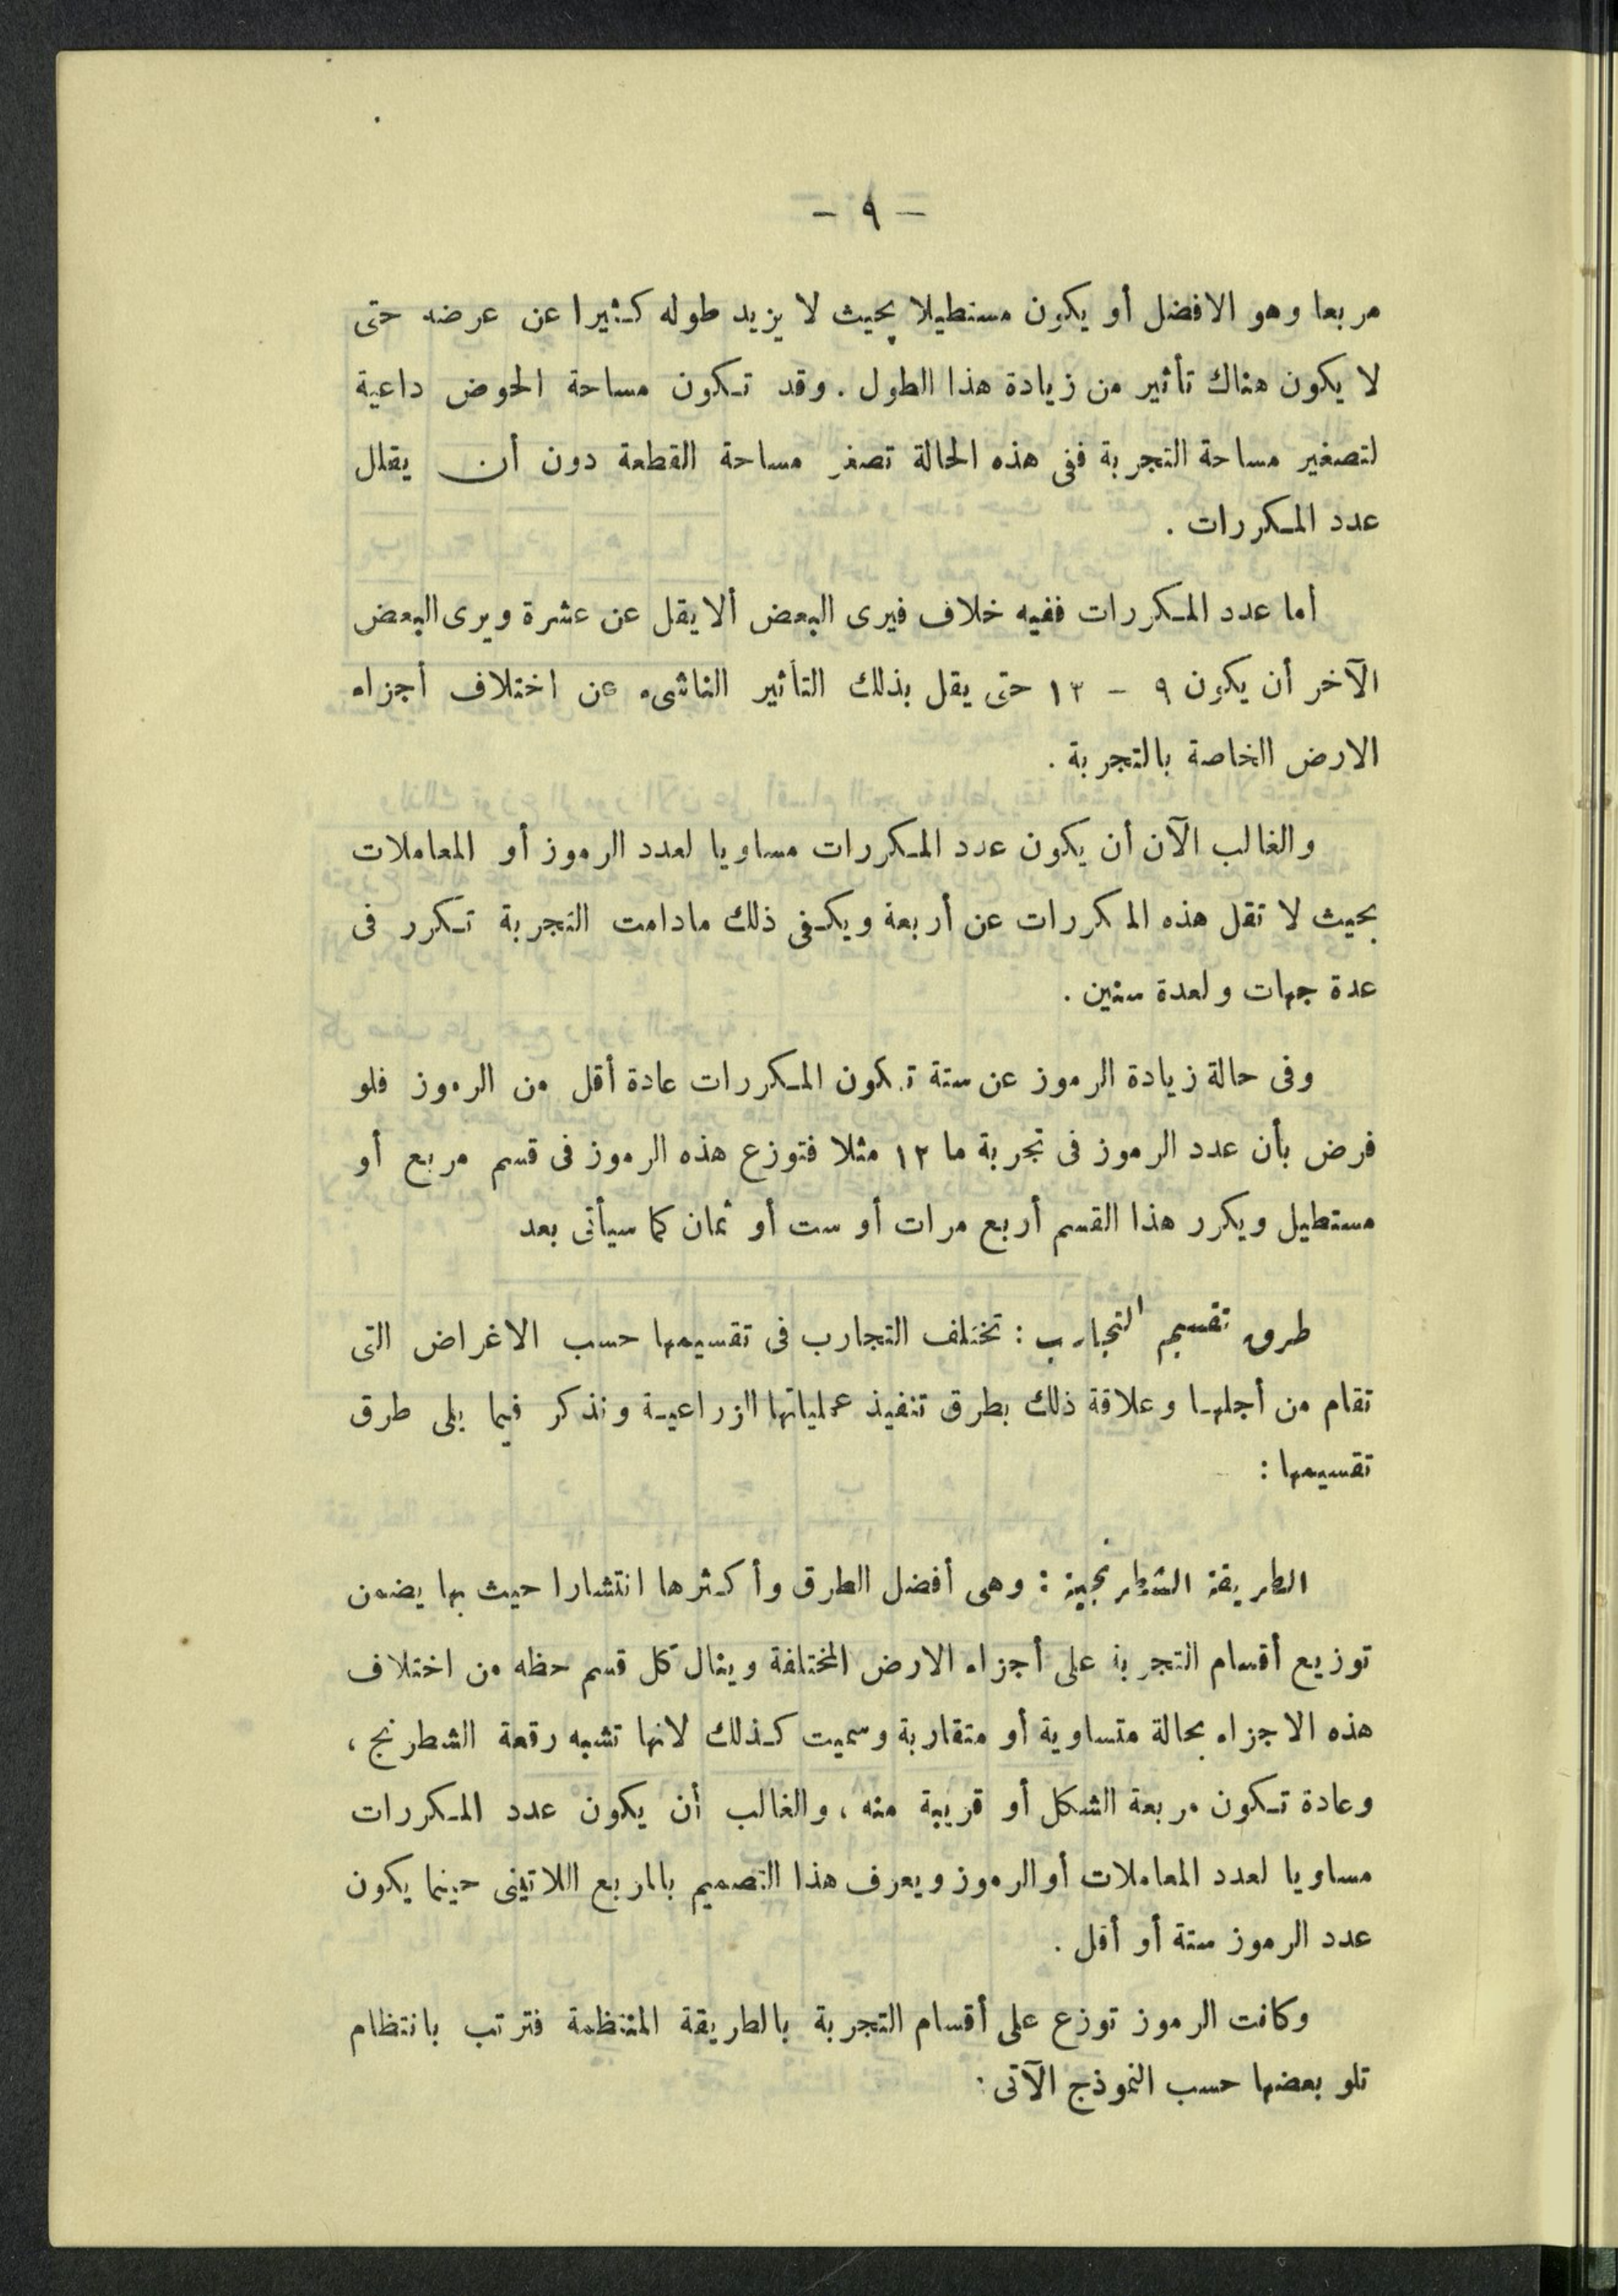 — ٩ —
مربعا وهو الافضل أو يكون مستطيلا بحيث لا يزيد طوله كثيرا عن عرضه حتى
لا يكون هناك تأثير من زيادة هذا الطول . وقد تكون مساحة الحوض داعية
لتصغير مساحة التجربة ففى هذه الحالة تصغر مساحة القطعة دون أن يقلل
عدد المكررات .
أما عدد المكررات ففيه خلاف فيرى البعض ألا يقل عن عشرة ويرى البعض
الآخر أن يكون ٩ – ١٣ حتى يقل بذلك التأثير الناشىء عن اختلاف أجزاء
الارض الخاصة بالتجربة .
والغالب الآن أن يكون عدد المكررات مساويا لعدد الرموز أو المعاملات
بحيث لا تقل هذه المكررات عن أربعة ويكفى ذلك مادامت التجربة تكرر فى
عدة جهات ولعدة سنين .
وفى حالة زيادة الرموز عن ستة تكون المكررات عادة أقل من الرموز فلو
فرض بأن عدد الرموز فى تجربة ما ١٢ مثلا فتوزع هذه الرموز فى قسم مربع أو
مستطيل ويكرر هذا القسم أربع مرات أو ست أو ثمان كما سيأتى بعد
طرق تقسيم التجارب : تختلف التجارب فى تقسيمها حسب الاغراض التى
تقام من أجلها وعلاقة ذلك بطرق تنفيذ عملياتها الزراعية ونذكر فيما يلى طرق
تقسيمها :
الطريقة الشطرنجية : وهى أفضل الطرق وأكثرها انتشارا حيث بها يضمن
توزيع أقسام التجربة على أجزاء الارض المختلفة وينال كل قسم حظه من اختلاف
هذه الاجزاء بحالة متساوية أو متقاربة وسميت كذلك لانها تشبه رقعة الشطرنج ،
وعادة تكون مربعة الشكل أو قريبة منه ، والغالب أن يكون عدد المكررات
مساويا لعدد المعاملات أو الرموز ويعرف هذا التصميم بالمربع اللاتينى حينما يكون
عدد الرموز ستة أو أقل .
وكانت الرموز توزع على أقسام التجربة بالطريقة المنتظمة فترتب بانتظام
تلو بعضها حسب النموذج الآتى :